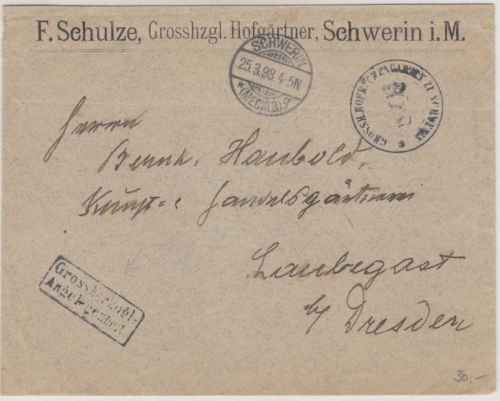 F. Schulze, Grosshzgl. Hofgärtner, Schwerin i. M.
SCHWERIN
25.3.98. 4-5N
*(MECKLB.)
GROSSH. HOFKÜCHENGARTEN ZU SCHWERIN
Herrn
Bernh. Haubold,
Kunst- & Handelsgärtnerei
Laubegast
b/ Dresden
Grossherzogl-
Angelegenheit
30.-